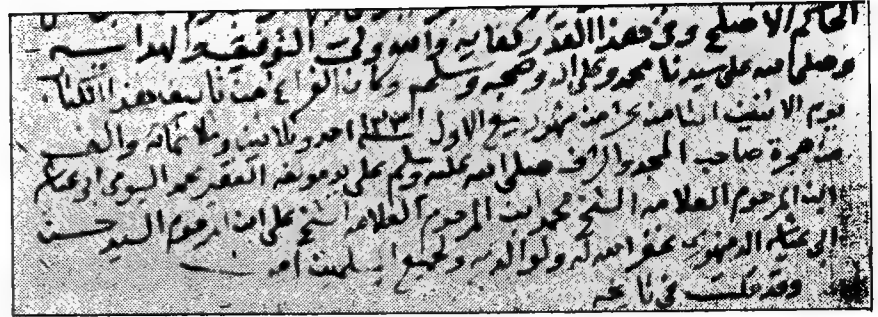 الحاكم الاصلح وفي هذا القدر كفاية والله ولي التوفيق والهداية
وصلى الله على سيدنا محمد وعلى اله وصحبه وسلم وكان الفراغ من تأليف هذا الكتاب
يوم الاثنين الثامن عشر من شهور ربيع الاول ١٣٣١ احد وثلاثين وثلاثمائة والف
من هجرة صاحب المجد والشرف صلى الله عليه وسلم على يد مؤلفه الفقير محمد البيومي ابو عياشة
ابن المرحوم العلامة الشيخ محمد ابن المرحوم العلامة الشيخ علي ابن المرحوم السيد حسن
ابي عياشة الدمنهوري غفر الله له ولوالديه ولجميع المسلمين امين
وقد قلت في تاريخه